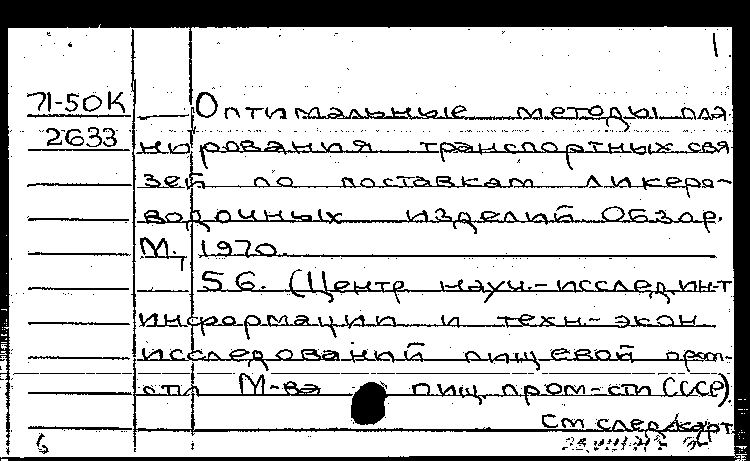 71-50К Оптимальные методы пла-
2633 нирования транспортных свя
зей по поставкам ликеро-
водочных изделий. Обзор.
М., 1970.
56. (Центр науч.-исслед. ин-т
информации и техн.-экон.
исследований пищевой пром-
М-ва пищ. пром-сти СССР).
См след/карт
6